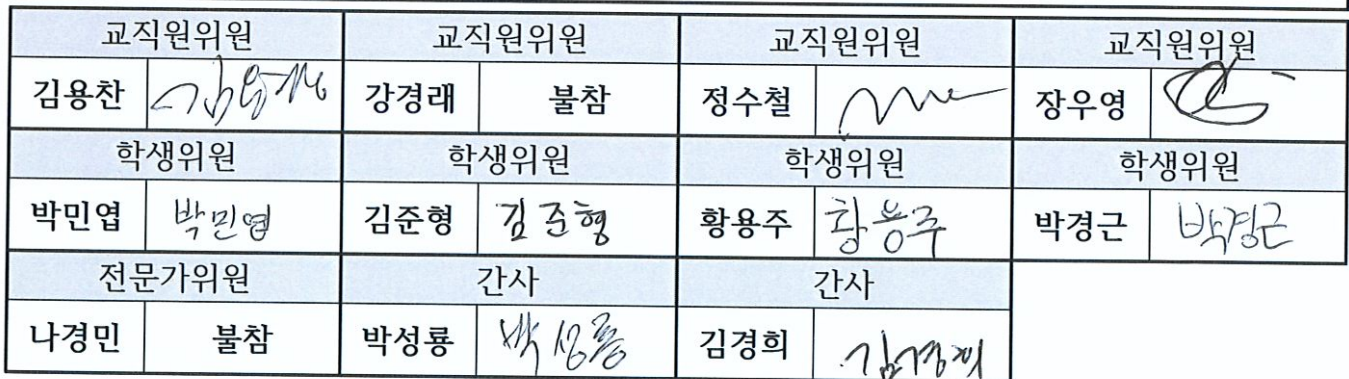 교직원위원 교직원위원 교직원위원 교직원위원
김용찬 김용찬 강경래 불참 정수철 장우영
학생위원 학생위원 학생위원 학생위원
박민엽 박민엽 김준형 김준형 황용주 황용주 박경근 박경근
전문가위원 간사 간사
나경민 불참 박성룡 박성룡 김경희 김경희